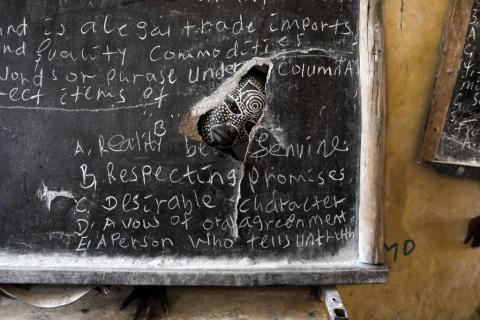 and is a legal trade imports
and quality Commodities
Words or Phrase Under Column A
rect items of
B
A, Reality be Genuine
B, Respecting promises
C, Desirable Character
D, A vows of oral agreement
E, A Person Who tells Untruth
MD